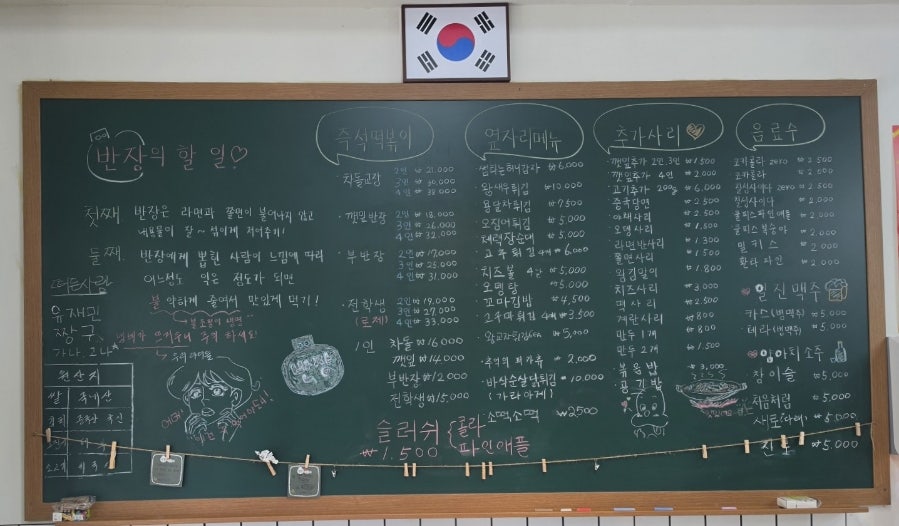 반장의 할 일♡
첫째 반장은 라면과 쫄면이 불어나지 않고
내용물이 잘~ 섞이게 저어주기!
둘째 반장에게 뽑힌 사람이 느낌에 따라
어느정도 익은 정도가 되면
불 약하게 줄여서 맛있게 먹기!
떠든사람
유재민
짱구
원산지
쌀 국내산
즉석떡볶이
·차돌교장 2인 ₩21.000
3인 ₩30,000
4인 ₩38,000
·깻잎반장 2인 ₩18.000
3인 ₩26.000
4인 ₩32.000
·부반장 2인 ₩17.000
3인 ₩25.000
4인 ₩31.000
·전학생 2인 ₩19,000
(로제) 3인 ₩27.000
4인 ₩33.000
1인 차돌 ₩16000
깻잎 ₩14000
부반장 ₩12.000
전학생 ₩15.000
슬러쉬 { 콜라
₩1.500 파인애플
옆자리메뉴
₩6,000
·왕새우튀김 ₩10.000
₩7,500
·오징어튀김 ₩5,000
₩5,000
₩6.000
·치즈볼 4알 ₩5.000
₩5,000
·꼬마김밥 ₩4,500
₩3,500
₩5,000
₩2,000
·바삭순살닭튀김 ₩10.000
소떡소떡 ₩2500
추가사리♡
·깻잎추가 2인.3인 ₩1,500
·깻잎추가 4인 ₩2.000
·고기추가 200g ₩6,000
·중국당면 ₩2,500
·야채사리 ₩2,500
·오뎅사리 ₩1,500
·라면반사리 ₩1,300
·쫄면사리 ₩1,500
₩1.800
·치즈사리 ₩3,000
·떡사리 ₩2,500
·계란사리 ₩800
·만두 1개 ₩800
·만두 2개 ₩1,500
·볶음밥 ₩3,000
·공기밥
음료수
코카콜라 zero ₩2,500
코카콜라 ₩2,500
칠성사이다 zero ₩2500
칠성사이다 ₩2,500
쿨피스파인애플 ₩2,000
쿨피스복숭아 ₩2,000
밀키스 ₩2,000
환타 파인 ₩2,000
♥일신맥주
카스(병맥주) ₩5,000
테라(병맥주) ₩5.000
참이슬 ₩5,000
처음처럼 ₩5.000
₩5.000
진로 ₩5.000